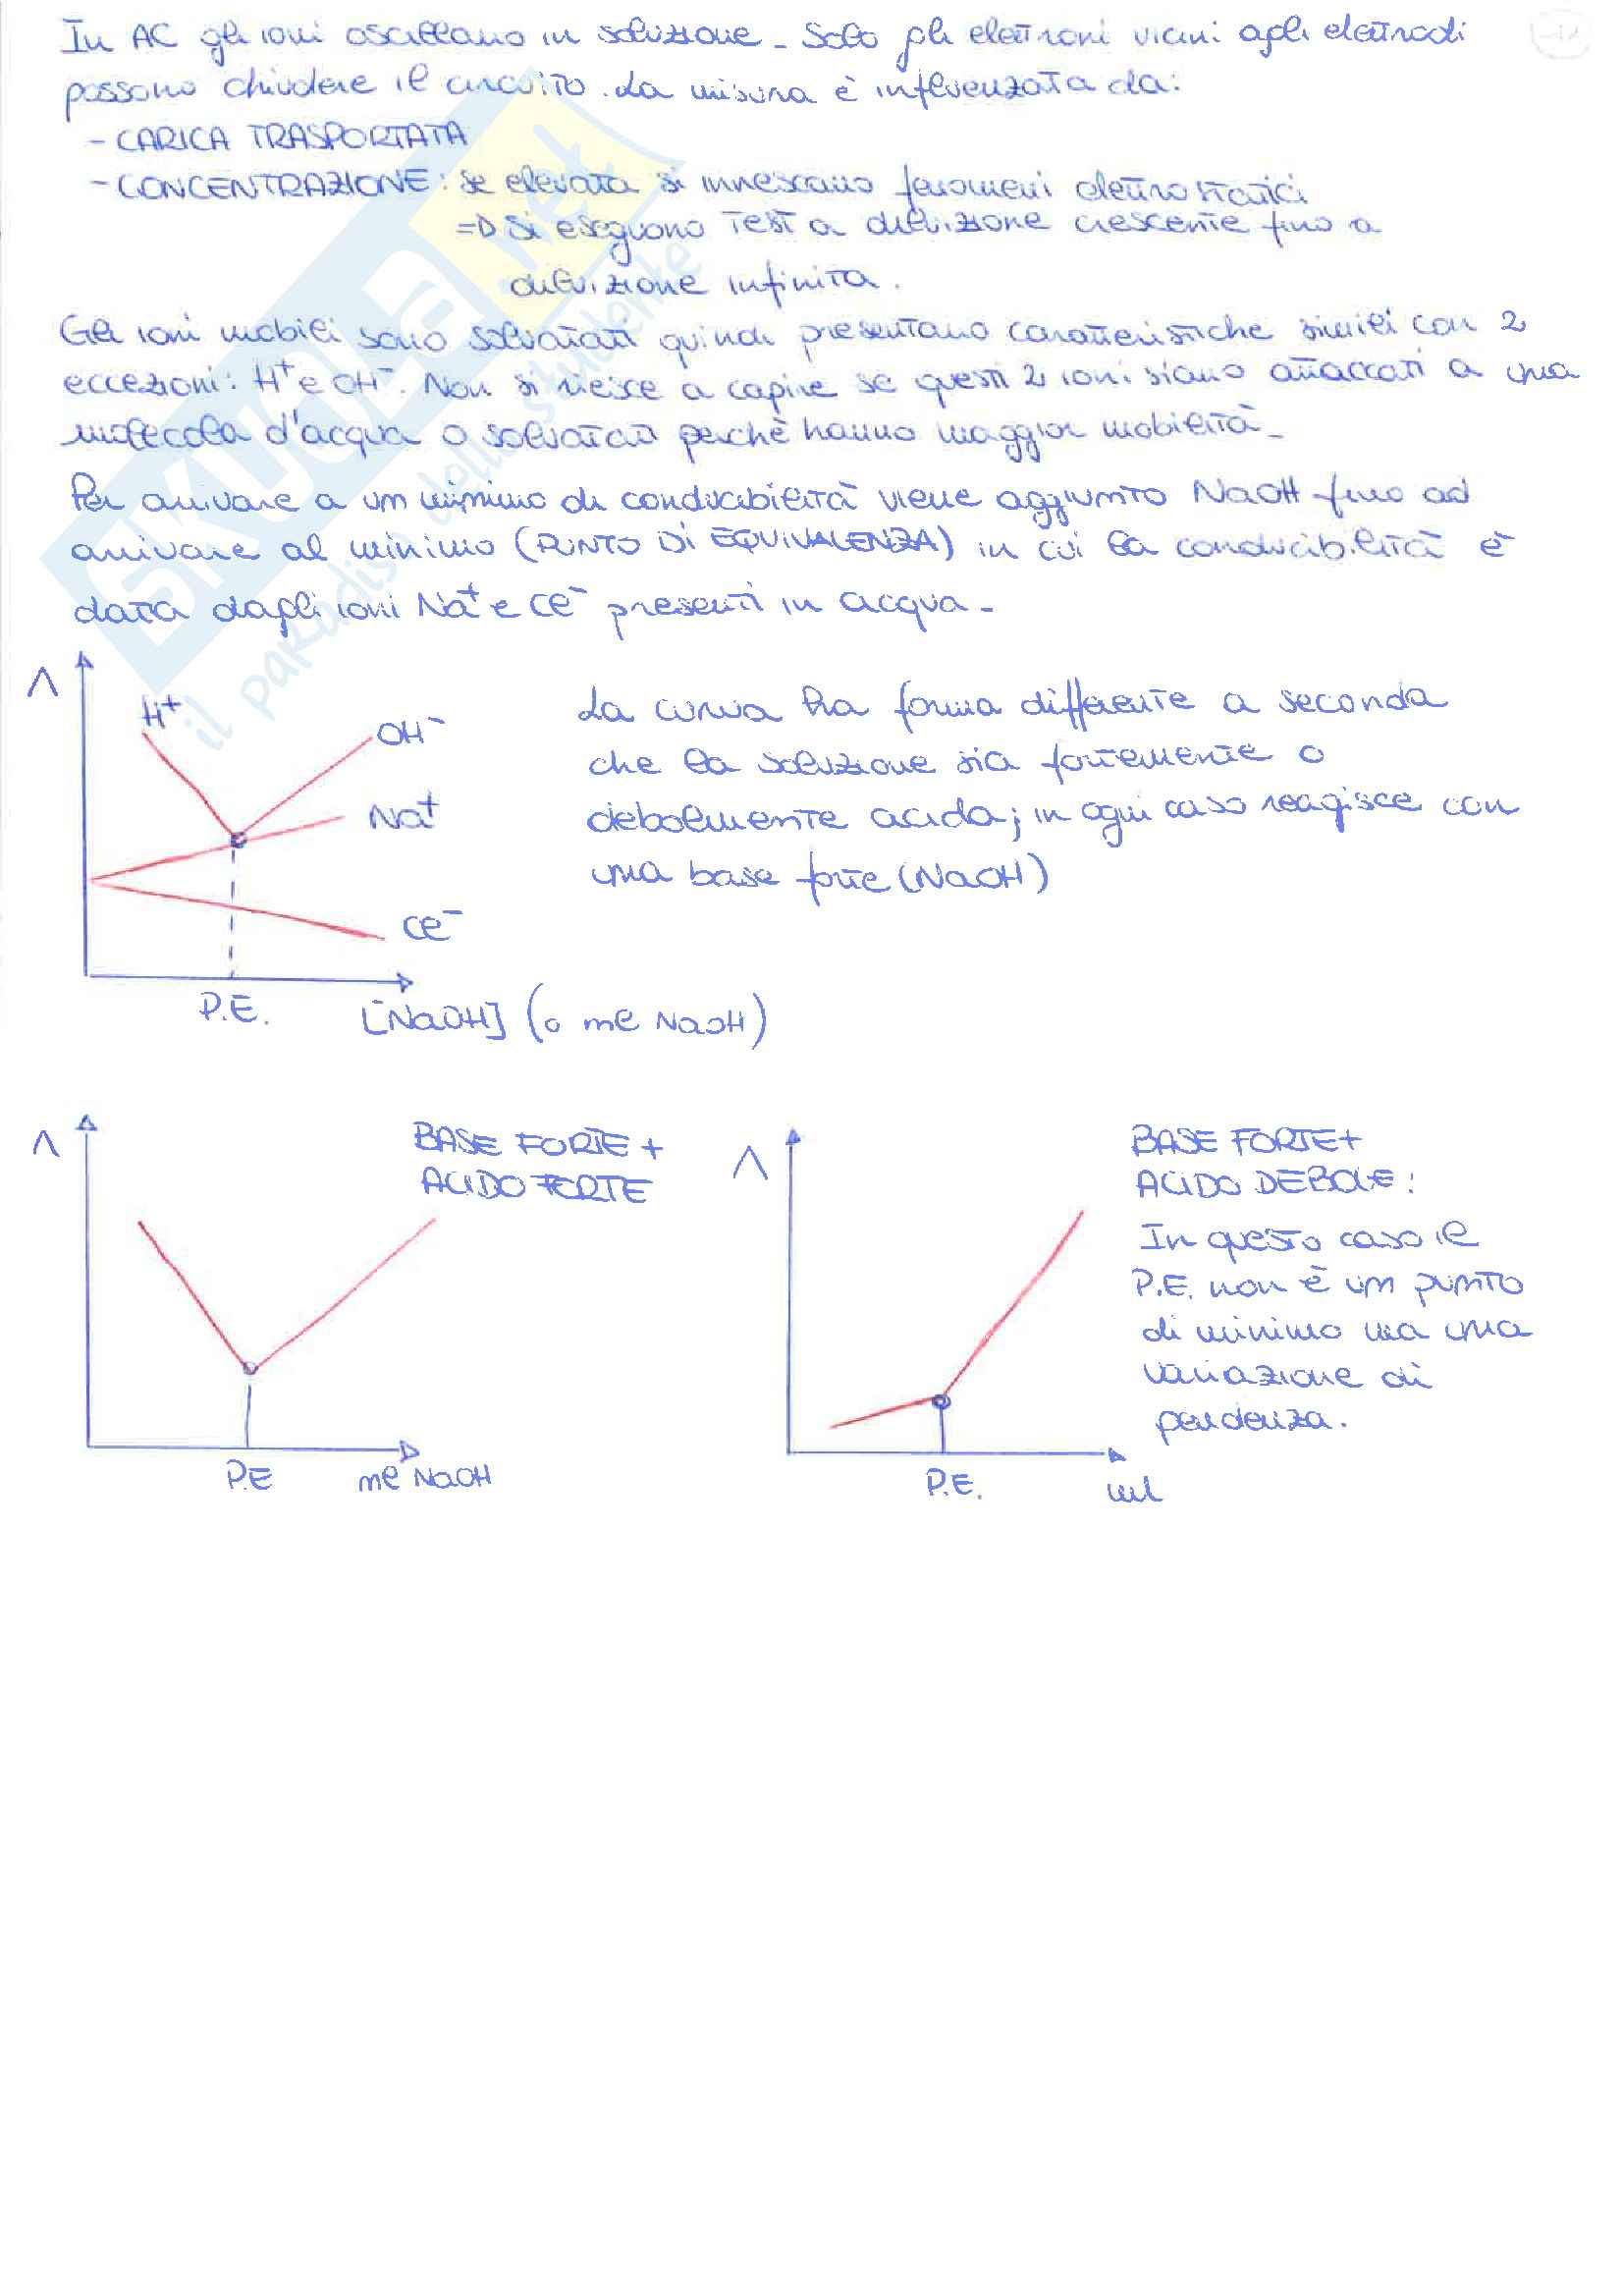 In AC gli ioni oscillano in soluzione. Solo gli elettroni vicini agli elettrodi
possono chiudere il circuito. La misura è influenzata da:
- CARICA TRASPORTATA
- CONCENTRAZIONE: se elevata si innescano fenomeni elettrostatici
=D Si eseguono test a diluizione crescente fino a
diluizione infinita.
Gli ioni mobili sono solvatati quindi presentano caratteristiche simili con 2
eccezioni: H+ e OH-. Non si riesce a capire se questi 2 ioni siano attaccati a una
molecola d'acqua o solvatati perchè hanno maggior mobilità.
Per arrivare a un minimo di conducibilità viene aggiunto NaOH fino ad
arrivare al minimo (PUNTO DI EQUIVALENZA) in cui la conducibilità è
data dagli ioni Na+ e Cl- presenti in acqua.
SKUOLA.net
il paradiso dello studente
Λ
H+
OH-
Na+
Cl-
P.E.
[NaOH] (o ml NaOH)
La curva ha forma differente a seconda
che la soluzione sia fortemente o
debolmente acida; in ogni caso reagisce con
una base forte (NaOH)
Λ
BASE FORTE +
ACIDO FORTE
P.E
ml NaOH
Λ
BASE FORTE+
ACIDO DEBOLE:
In questo caso il
P.E. non è un punto
di minimo ma una
variazione di
pendenza.
P.E.
ml